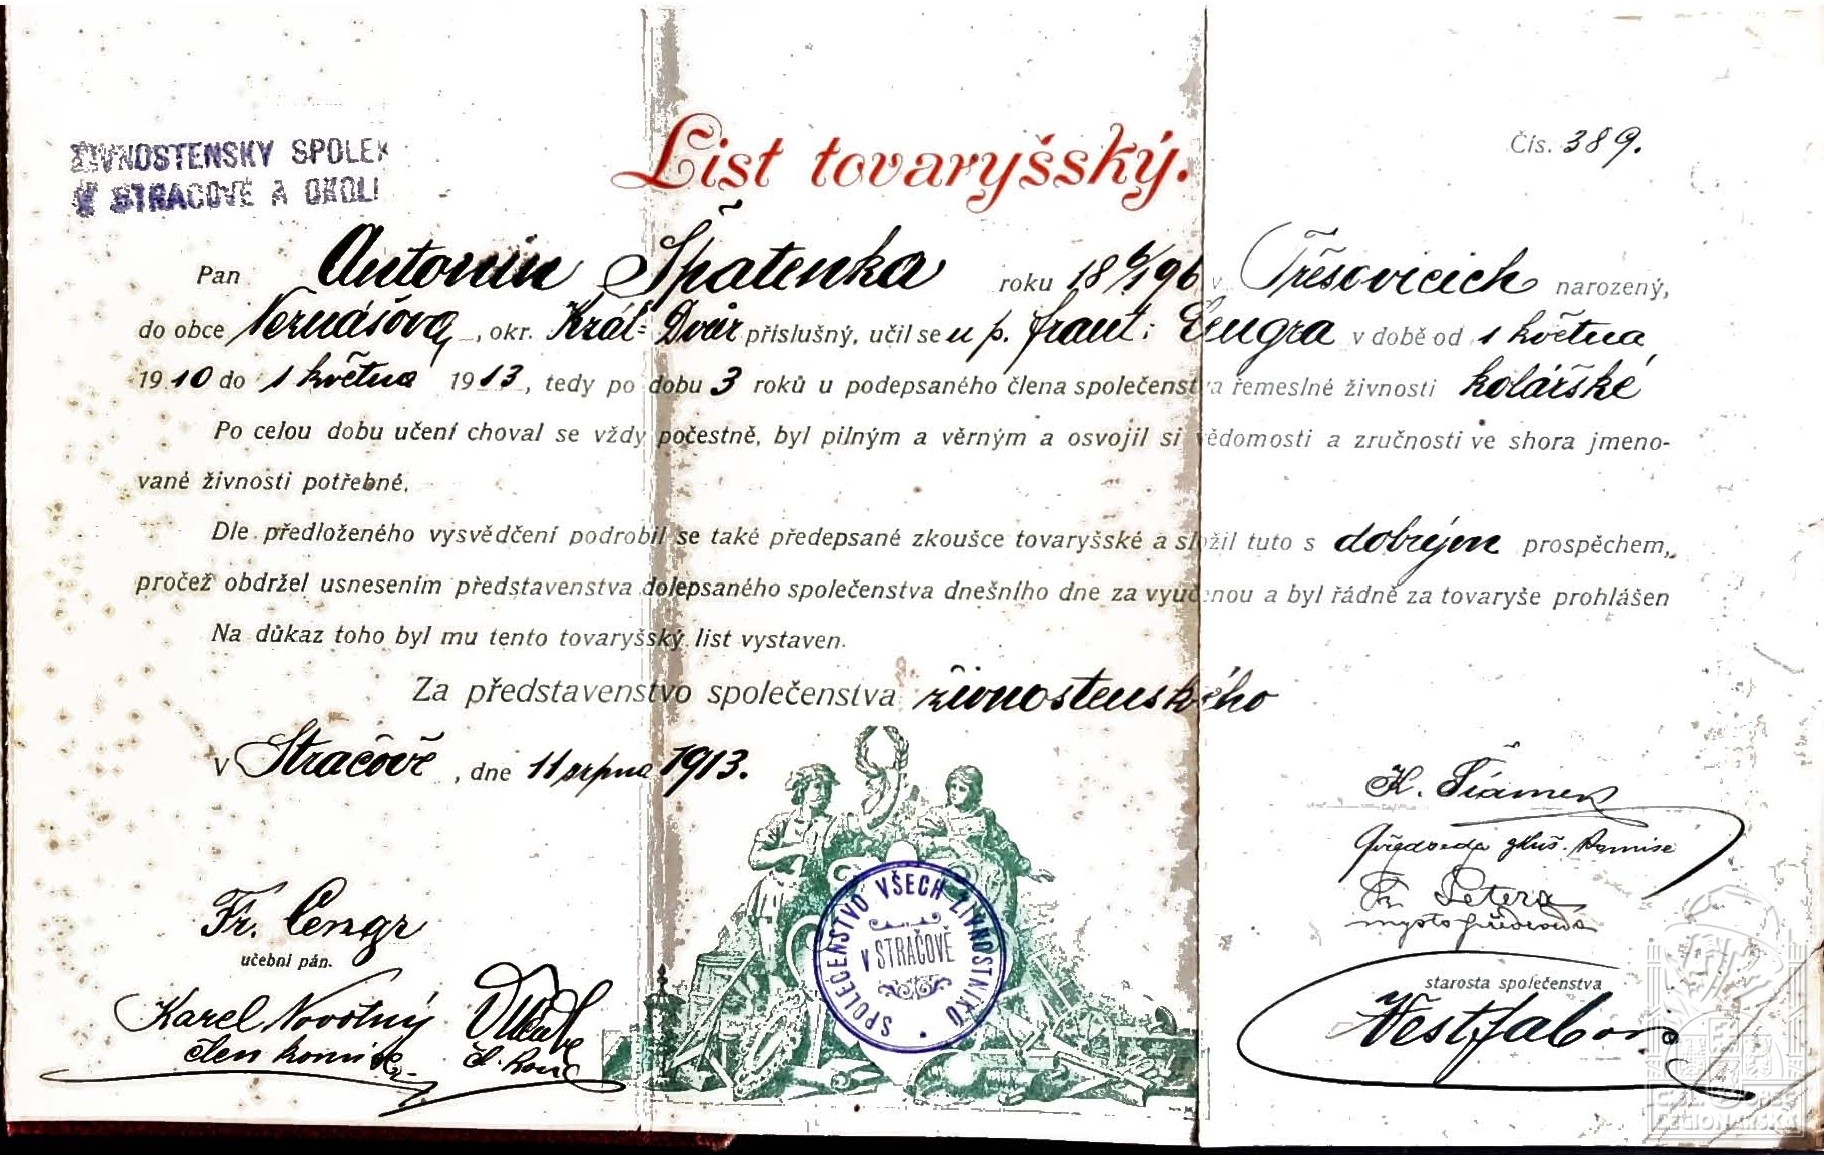 ŽIVNOSTENSKÝ SPOLEK
V STRAČOVĚ A OKOLÍ
List tovaryšský.
Čís. 389.
Pan Antonín Špatenka roku 18 6/1 96 v Třesovicích narozený,
do obce Nerudášova, okr. Král. Dvůr příslušný, učil se u p. Frant. Cengra v době od 1 května
1910 do 1 května 1913, tedy po dobu 3 roků u podepsaného člena společenstva řemeslné živnosti kolářské
Po celou dobu učení choval se vždy počestně, byl pilným a věrným a osvojil si vědomosti a zručnosti ve shora jmeno-
vané živnosti potřebné.
Dle předloženého vysvědčení podrobil se také předepsané zkoušce tovaryšské a složil tuto s dobrým prospěchem,
pročež obdržel usnesením představenstva dolepsaného společenstva dnešního dne za vyučenou a byl řádně za tovaryše prohlášen
Na důkaz toho byl mu tento tovaryšský list vystaven.
Za představenstvo společenstva živnostenského
V Stračově, dne 11 srpna 1913.
K. Šrámek
předseda zkuš. komise
Fr. Petera
místopředseda
Fr. Cengr
učební pán.
Karel Novotný
člen komise
čl. kom
SPOLEČENSTVO VŠECH ŽIVNOSTNÍKŮ
V STRAČOVĚ
starosta společenstva
Westfabor
ČSL. OBEC
LEGIONÁŘSKÁ